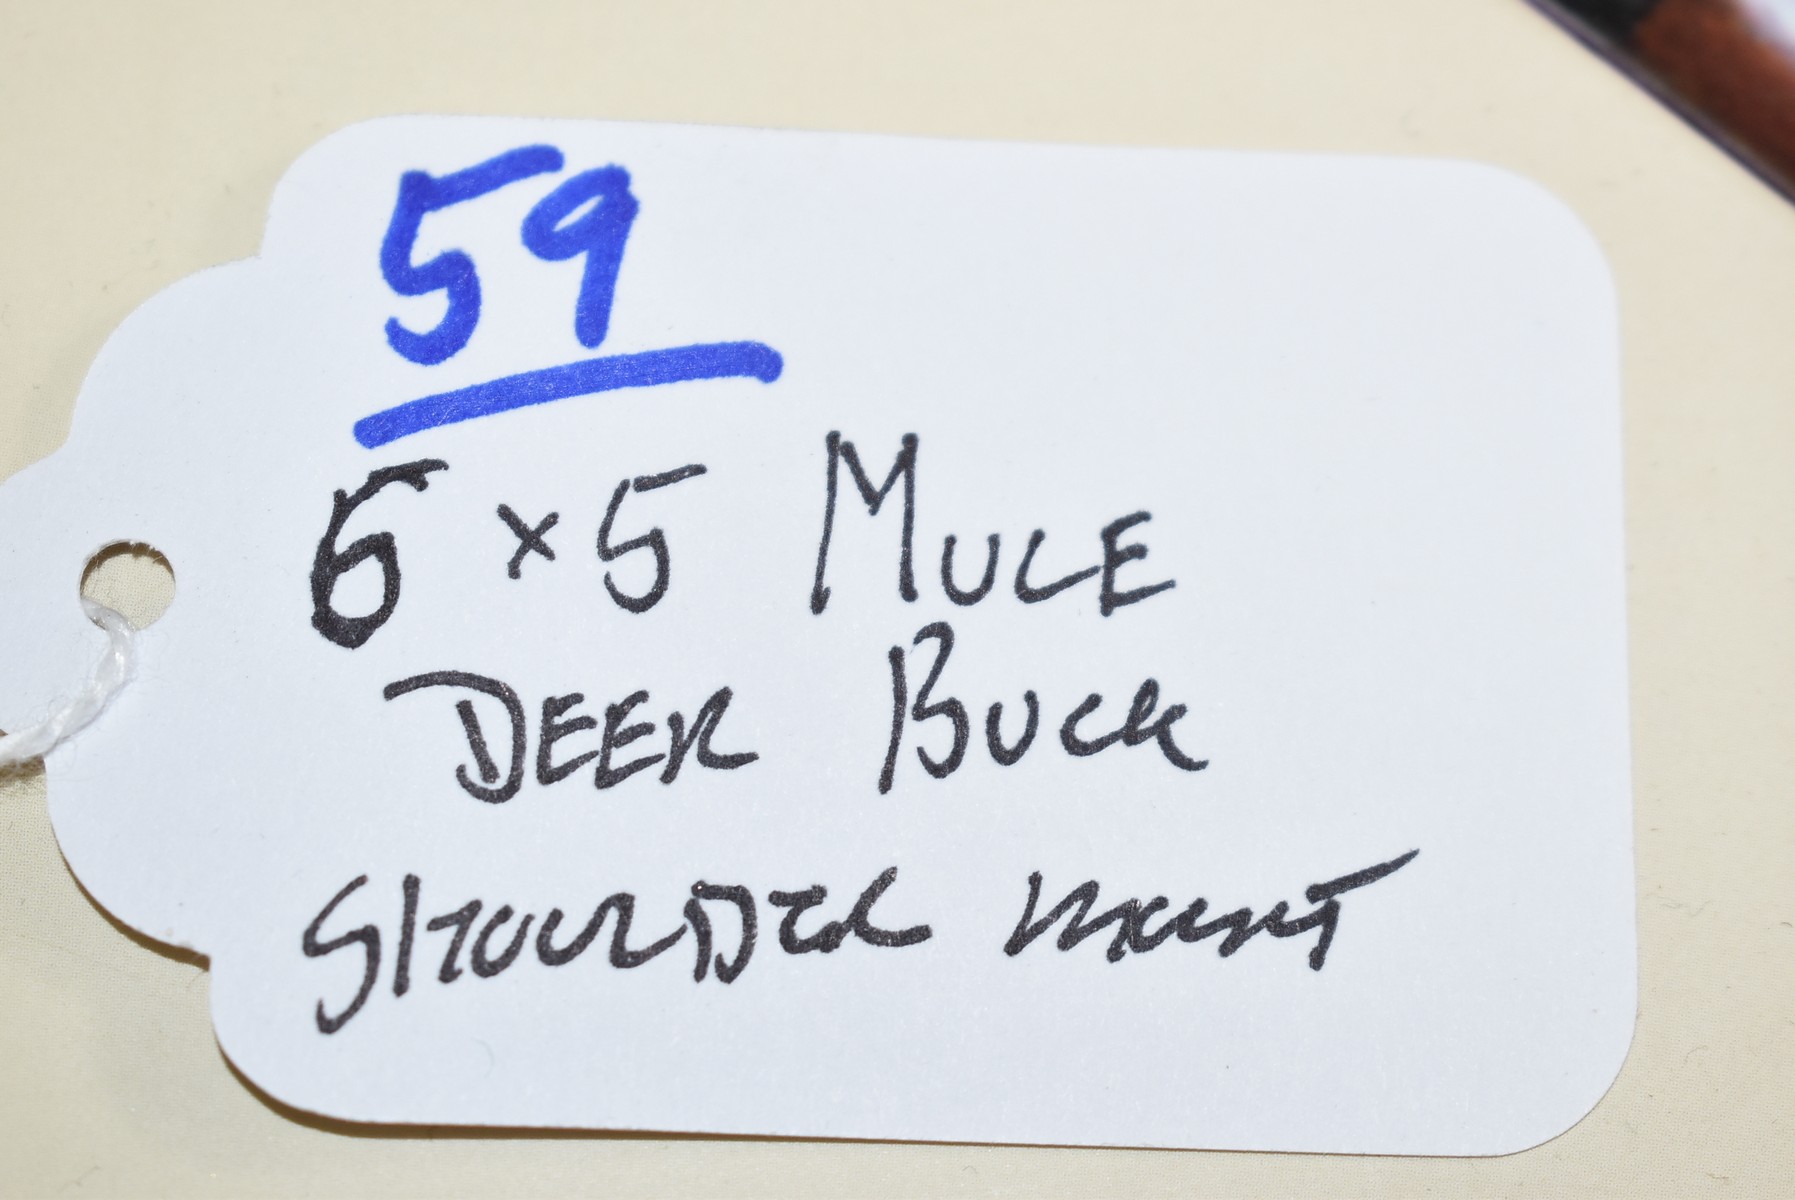 59
6 x 5 MULE
DEER BUCK
SHOULDER MOUNT